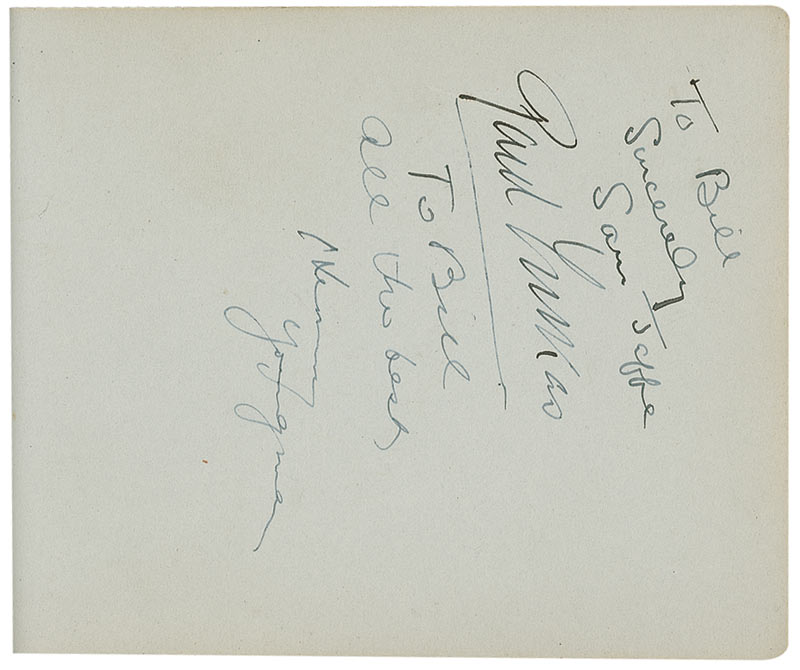 To Bill
Sincerely
Sam Jaffe
Paul Lukas
To Bill
all the best
Henny
Youngman